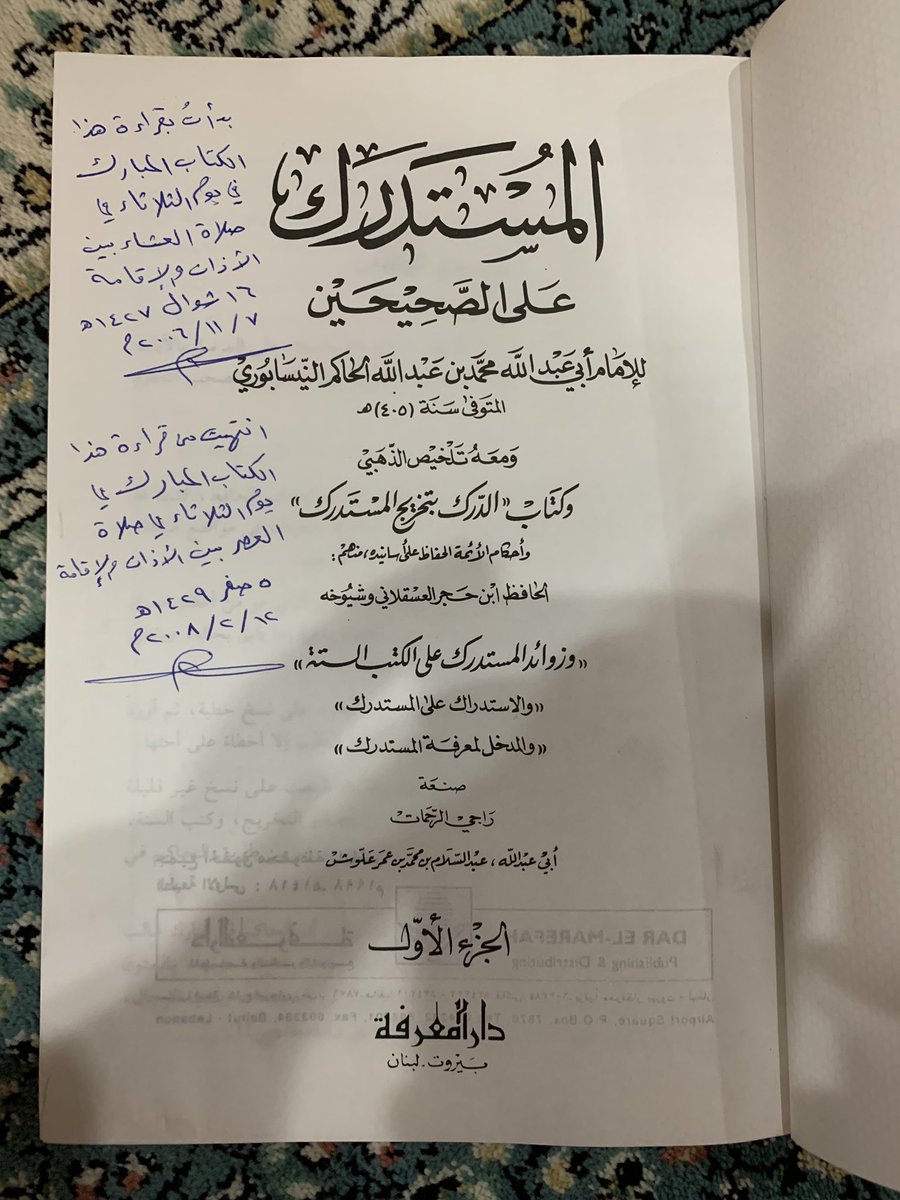 المُسْتَدرَك
عَلى الصَّحِيْحَيْن
للإمام أبي عَبْد الله محمَّد بن عَبْد الله الحاكم النيّسَابُوريْ
المتوفى سَنَة (٤٠٥) هـ
وَمعَهُ تَلخيصُ الذّهَبيْ
وكتَاب "الدّرك بتخريج المسْتَدرك"
وأحكام الأئمة الحفاظ على أسانيده، منهم:
الحافظ ابن حَجر العَسْقلاني وشيُوخه
"وزوائد المستدرك على الكتب الستة"
"والاستدراك على المستدرك"
"والمدخل لمعرفة المستدرك"
صنعَة
رَاجي الرّحمَات
أبي عبدالله، عبدالسَّلام بن محمَّد بن عمَر عَلّوش
الجزء الأوّل
دار المعرفة
بَيروت - لبنان
بدأتُ بقراءة هذا
الكتاب المبارك
في يوم الثلاثاء في
صلاة العشاء بين
الأذان والإقامة
١٦ شوال ١٤٢٧هـ
٢٠٠٦/١١/٧م
انتهيت من قراءة هذا
الكتاب المبارك في
يوم الثلاثاء في صلاة
العصر بين الأذان والإقامة
٥ صفر ١٤٢٩هـ
٢٠٠٨/٢/١٢م
DAR EL-MAREFAH
Publishing & Distributing